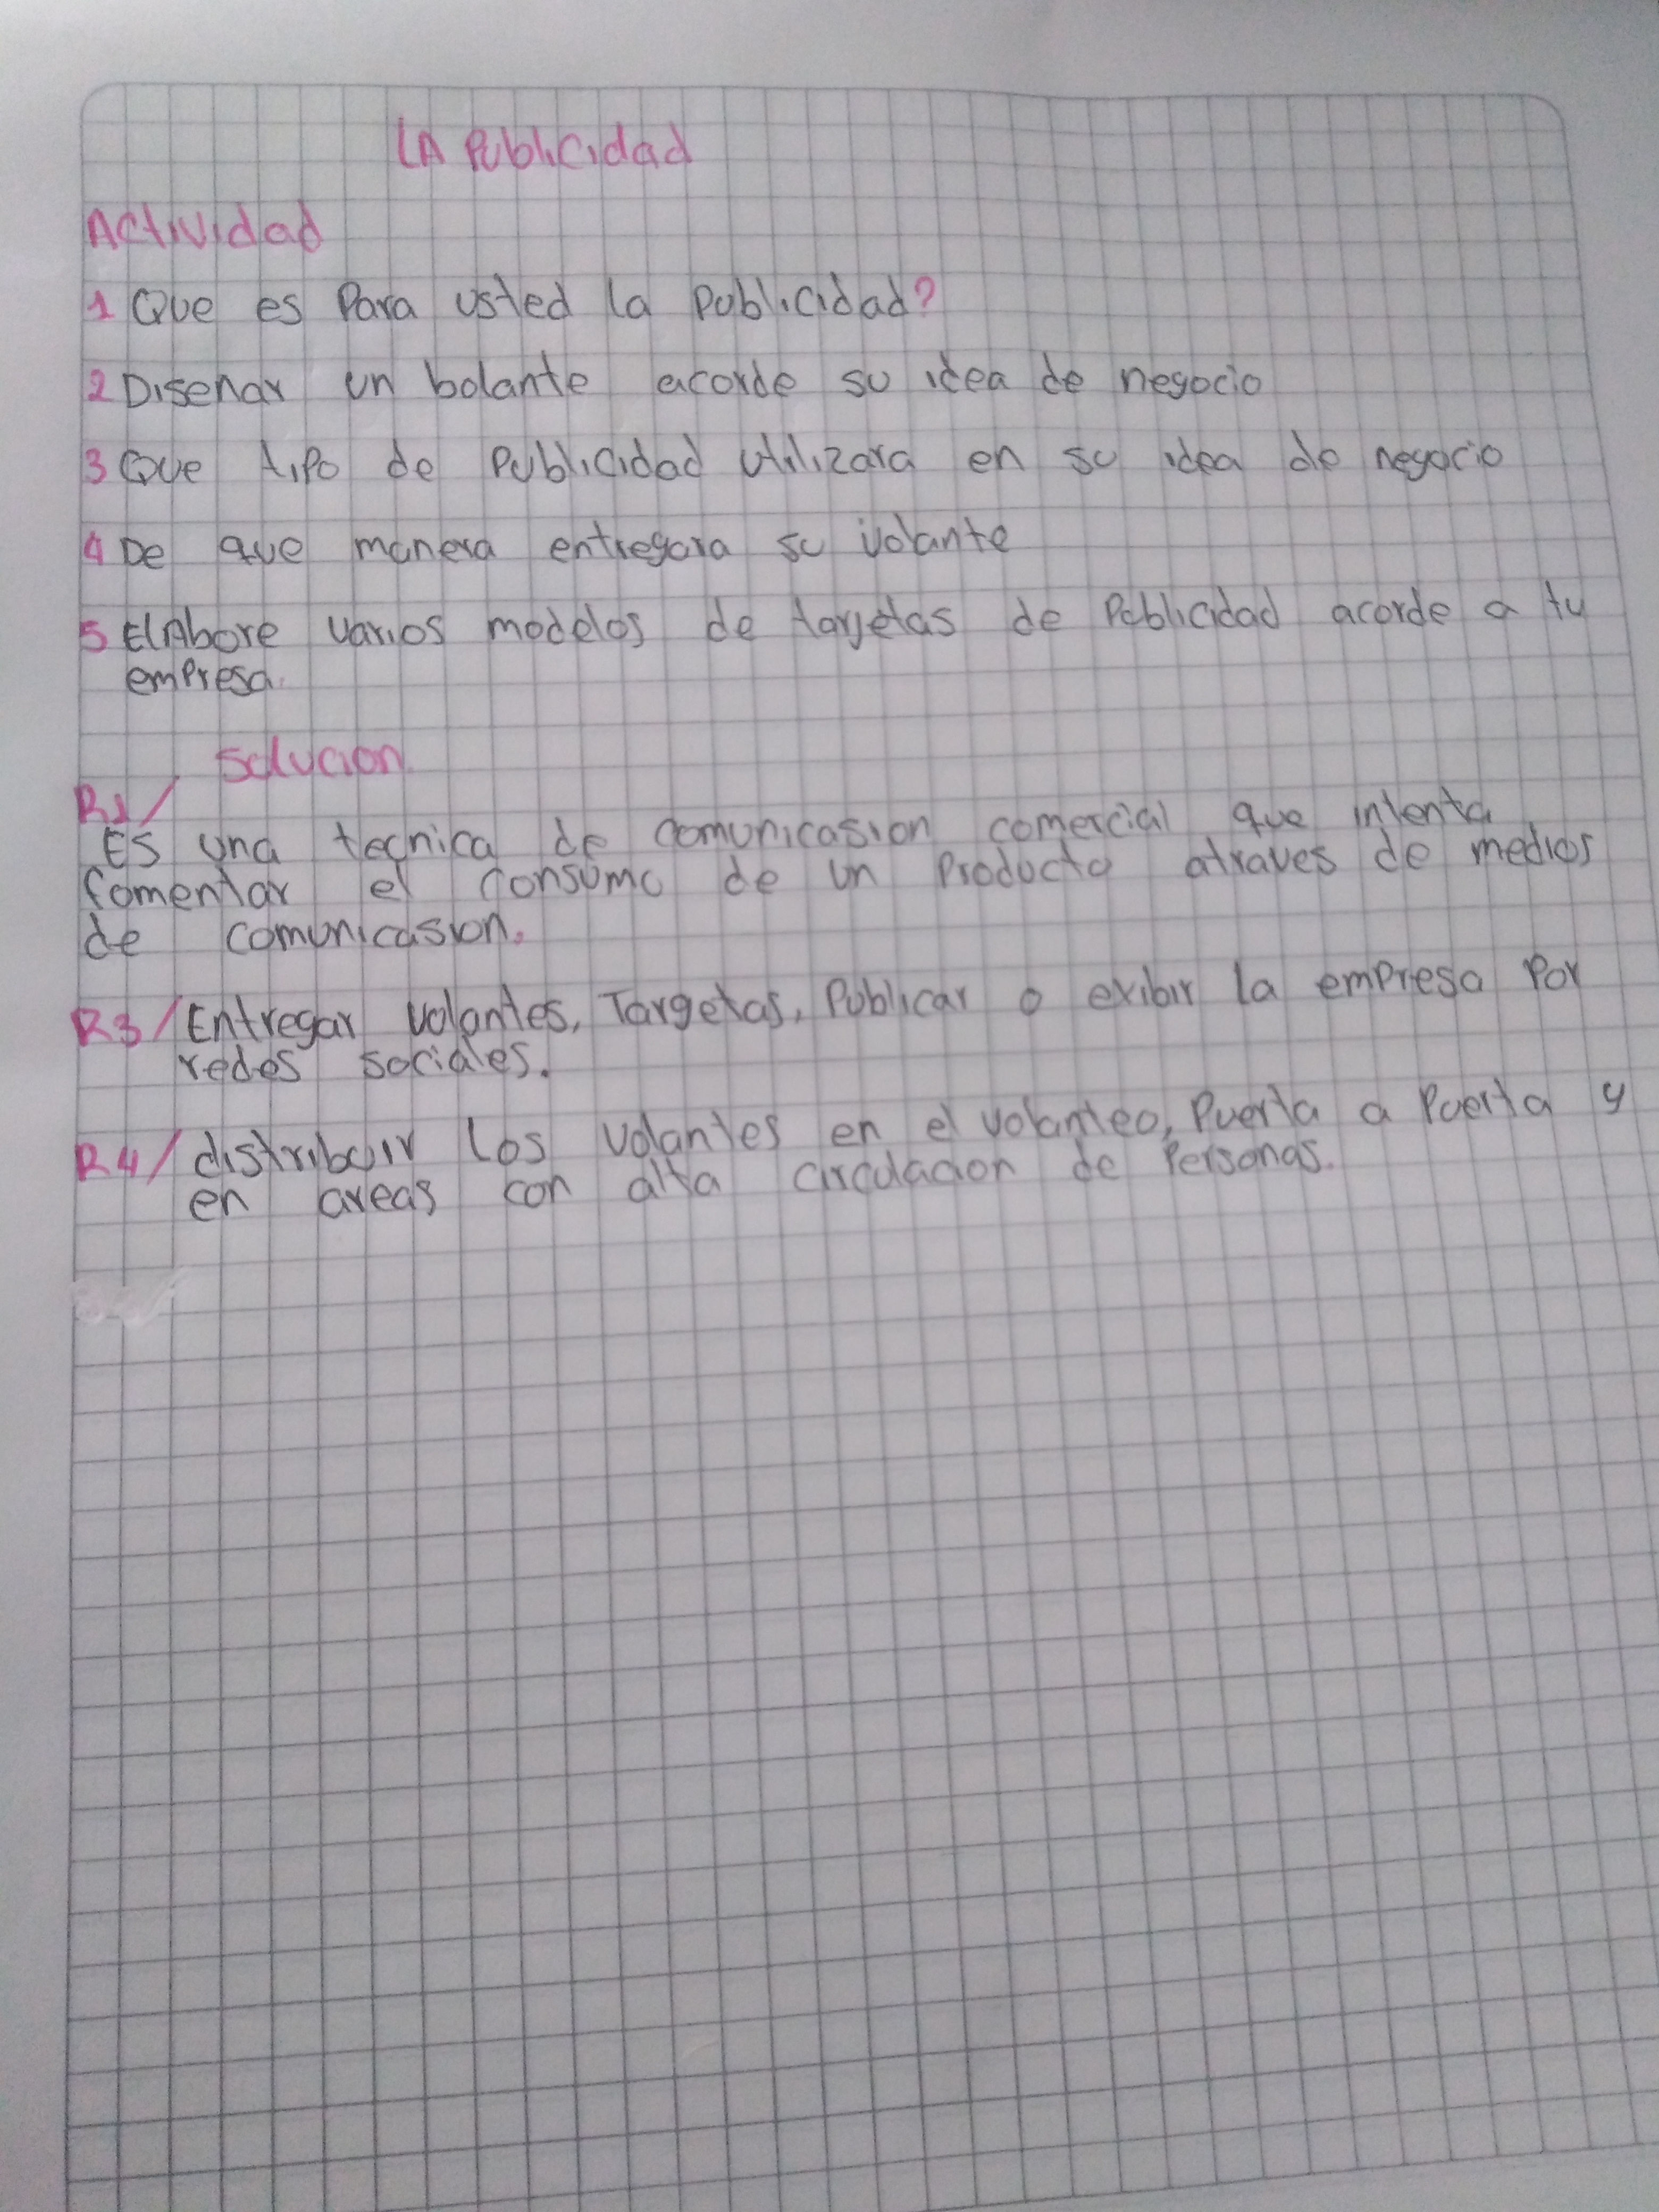 LA Publicidad
Actividad
1 Que es Para usted la publicidad?
2 Disenar un bolante acorde su idea de negocio
3 Que tipo de Publicidad utilizara en su idea de negocio
4 De que manera entregara su volante
5 ElAbore varios modelos de targetas de Publicidad acorde a tu
empresa.
Solucion
R1/
Es una tecnica de comunicasion comercial que intenta
fomentar el consumo de un Producto atraves de medios
de comunicasion.
R3/ Entregar volantes, Targetas, Publicar o exibir la empresa Por
redes sociales.
R4/ distribuir Los volantes en el volanteo, Puerta a Puerta y
en areas con alta circulacion de Personas.